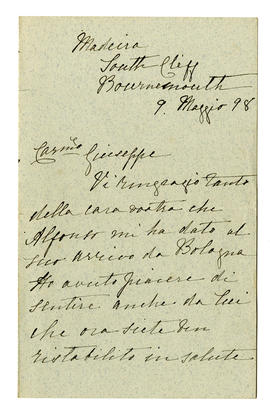 Madeira
South Cliff
Bournemouth
9. Maggio 98
Carmo Giuseppe
Vi ringrazio tanto
della cara vostra che
Alfonso mi ha dato al
suo arrivo da Bologna
Ho avuto piacere di
sentire anche da lui
che ora siete ben
ristabilito in salute